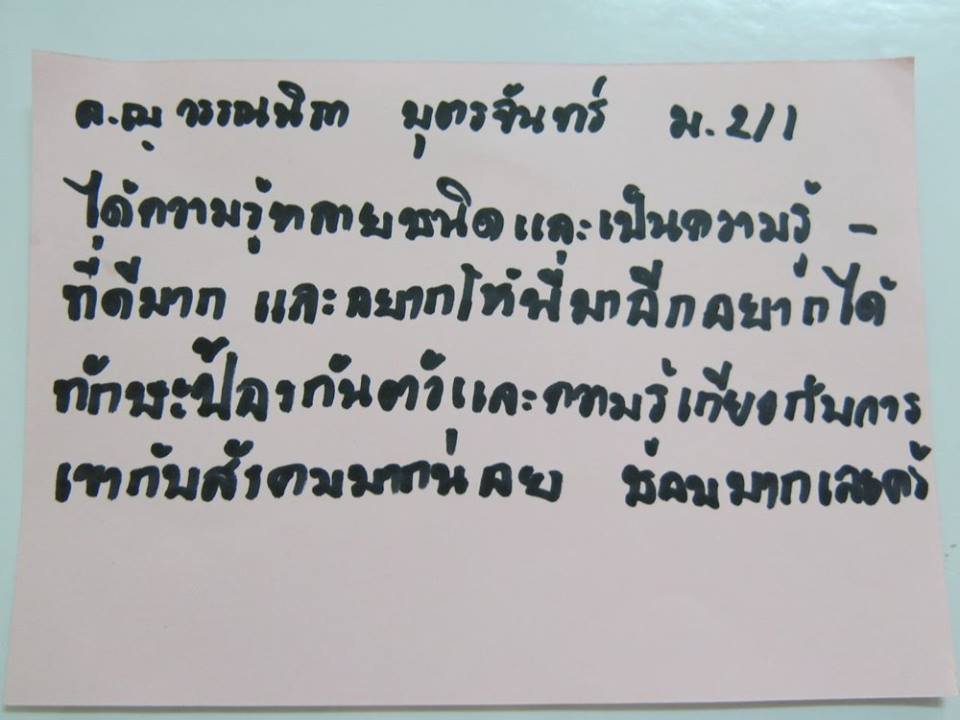 ด.ญ วรรณนิภา บุตรจันทร์ ม.2/1
ได้ความรู้หลายชนิดและเป็นความรู้ -
ที่ดีมาก และอยากให้พี่มาอีกอยากได้
ทักษะป้องกันตัวและความรู้เกี่ยวกับการ
เขากับสังคมมากน่อย ชอบมากเลยค่ะ